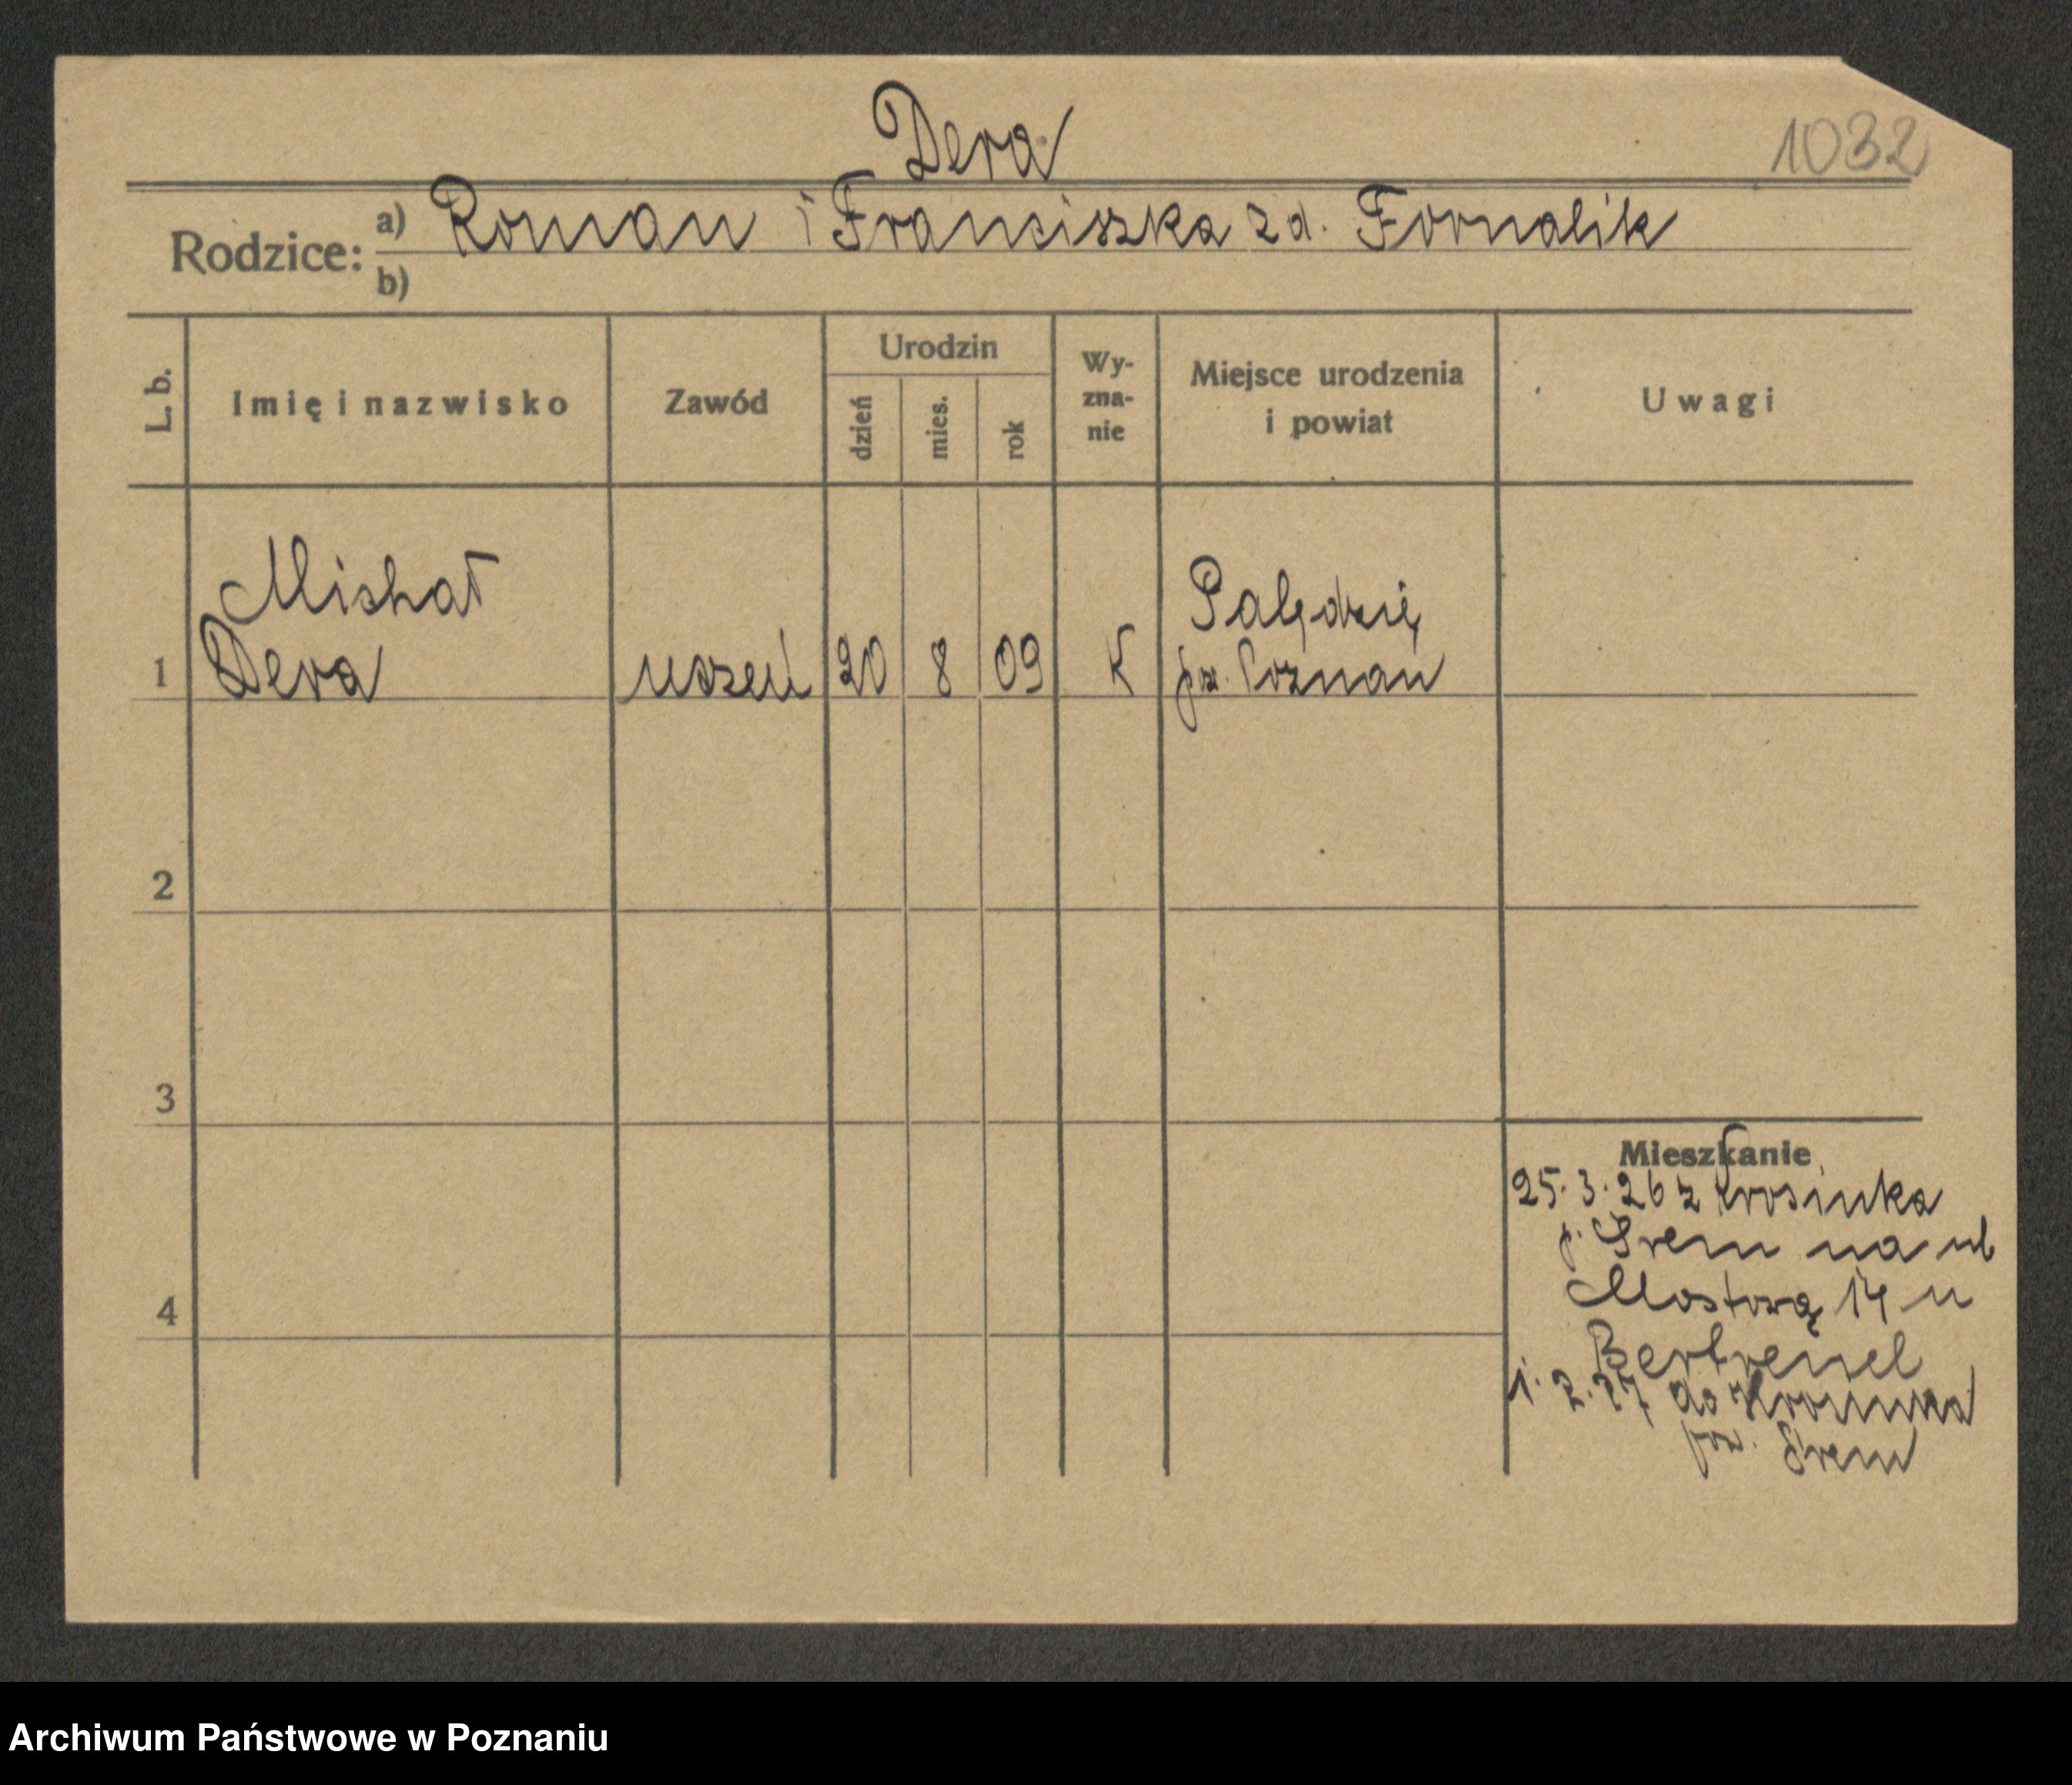 Dera
1032
Rodzice:
a) Roman i Franciszka zd. Fornalik
b)
L. b.
Imię i nazwisko
Zawód
Urodzin
dzień
mies.
rok
Wy-
zna-
nie
Miejsce urodzenia
i powiat
Uwagi
Michał
Dera
1
uczeń
20
8
09
K
Palędzie
pow. Poznań
2
3
4
Mieszkanie
25.3.26 z Krosinka
p. Śrem na ul
Mostową 14 u
1.2.27 do Krosinka
pow. Śrem
Archiwum Państwowe w Poznaniu